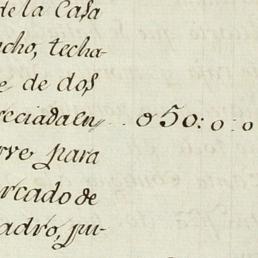 de la Casa
cho, techa-
e de dos
reciada en .. 050: 0: 0
rve para
rcado de
adro, pu-